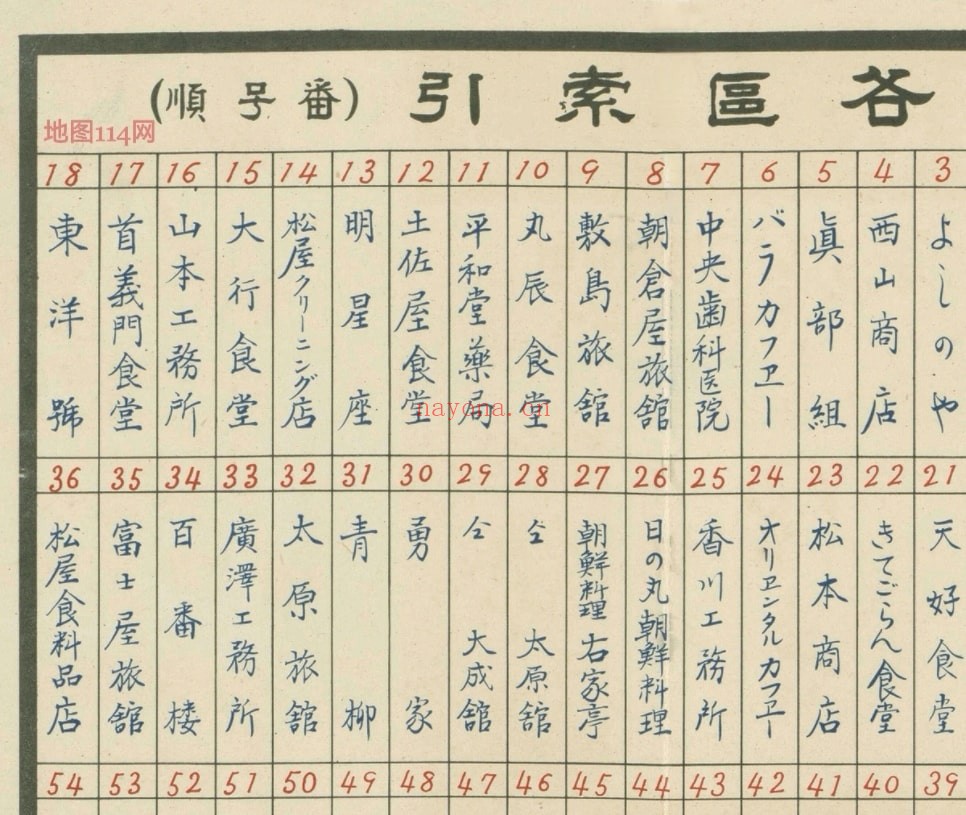 各區索引 (番号順)
地图114网
3 よしのや
4 西山商店
5 眞部組
6 バラカフヱー
7 中央歯科医院
8 朝倉屋旅舘
9 敷島旅舘
10 丸辰食堂
11 平和堂藥局
12 土佐屋食堂
13 明星座
14 松屋クリーニング店
15 大行食堂
16 山本工務所
17 首義門食堂
18 東洋號
nayona.cn
21 天好食堂
22 きてごらん食堂
23 松本商店
24 オリヱンタルカフヱー
25 香川工務所
26 日の丸朝鮮料理
27 朝鮮料理右家亭
28 仝 太原舘
29 仝 大成舘
30 勇家
31 青柳
32 太原旅舘
33 廣澤工務所
34 百番楼
35 富士屋旅舘
36 松屋食料品店
39
40
41
42
43
44
45
46
47
48
49
50
51
52
53
54